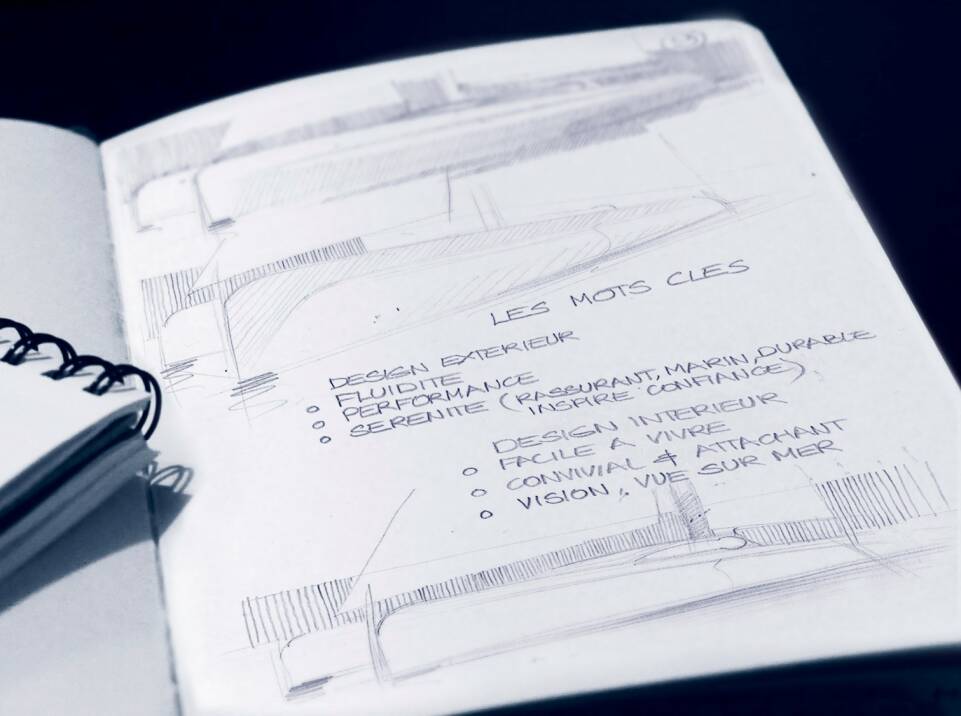 LES MOTS CLES
DESIGN EXTERIEUR
○ FLUIDITE
○ PERFORMANCE
○ SERENITE (RASSURANT, MARIN, DURABLE
INSPIRE CONFIANCE)
DESIGN INTERIEUR
○ FACILE A VIVRE
○ CONVIVIAL & ATTACHANT
○ VISION, VUE SUR MER